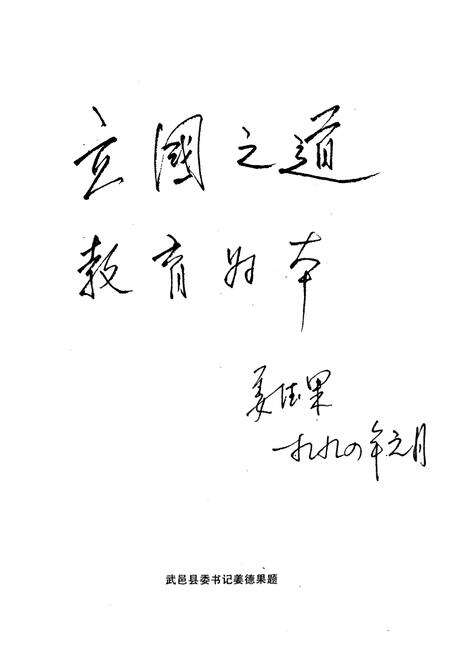 立國之道
教育为本
姜德果
一九九四年元月
武邑县委书记姜德果题